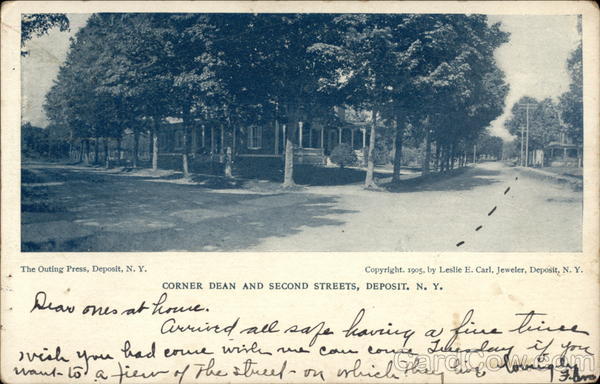 The Outing Press, Deposit, N. Y.
Copyright, 1905, by Leslie E. Carl, Jeweler, Deposit, N. Y.
CORNER DEAN AND SECOND STREETS, DEPOSIT, N. Y.
Dear ones at home.
Arrived all safe having a fine time
wish you had come with me can come Tuesday if you
want to a view of the street on which they live lovingly
CardCow.com